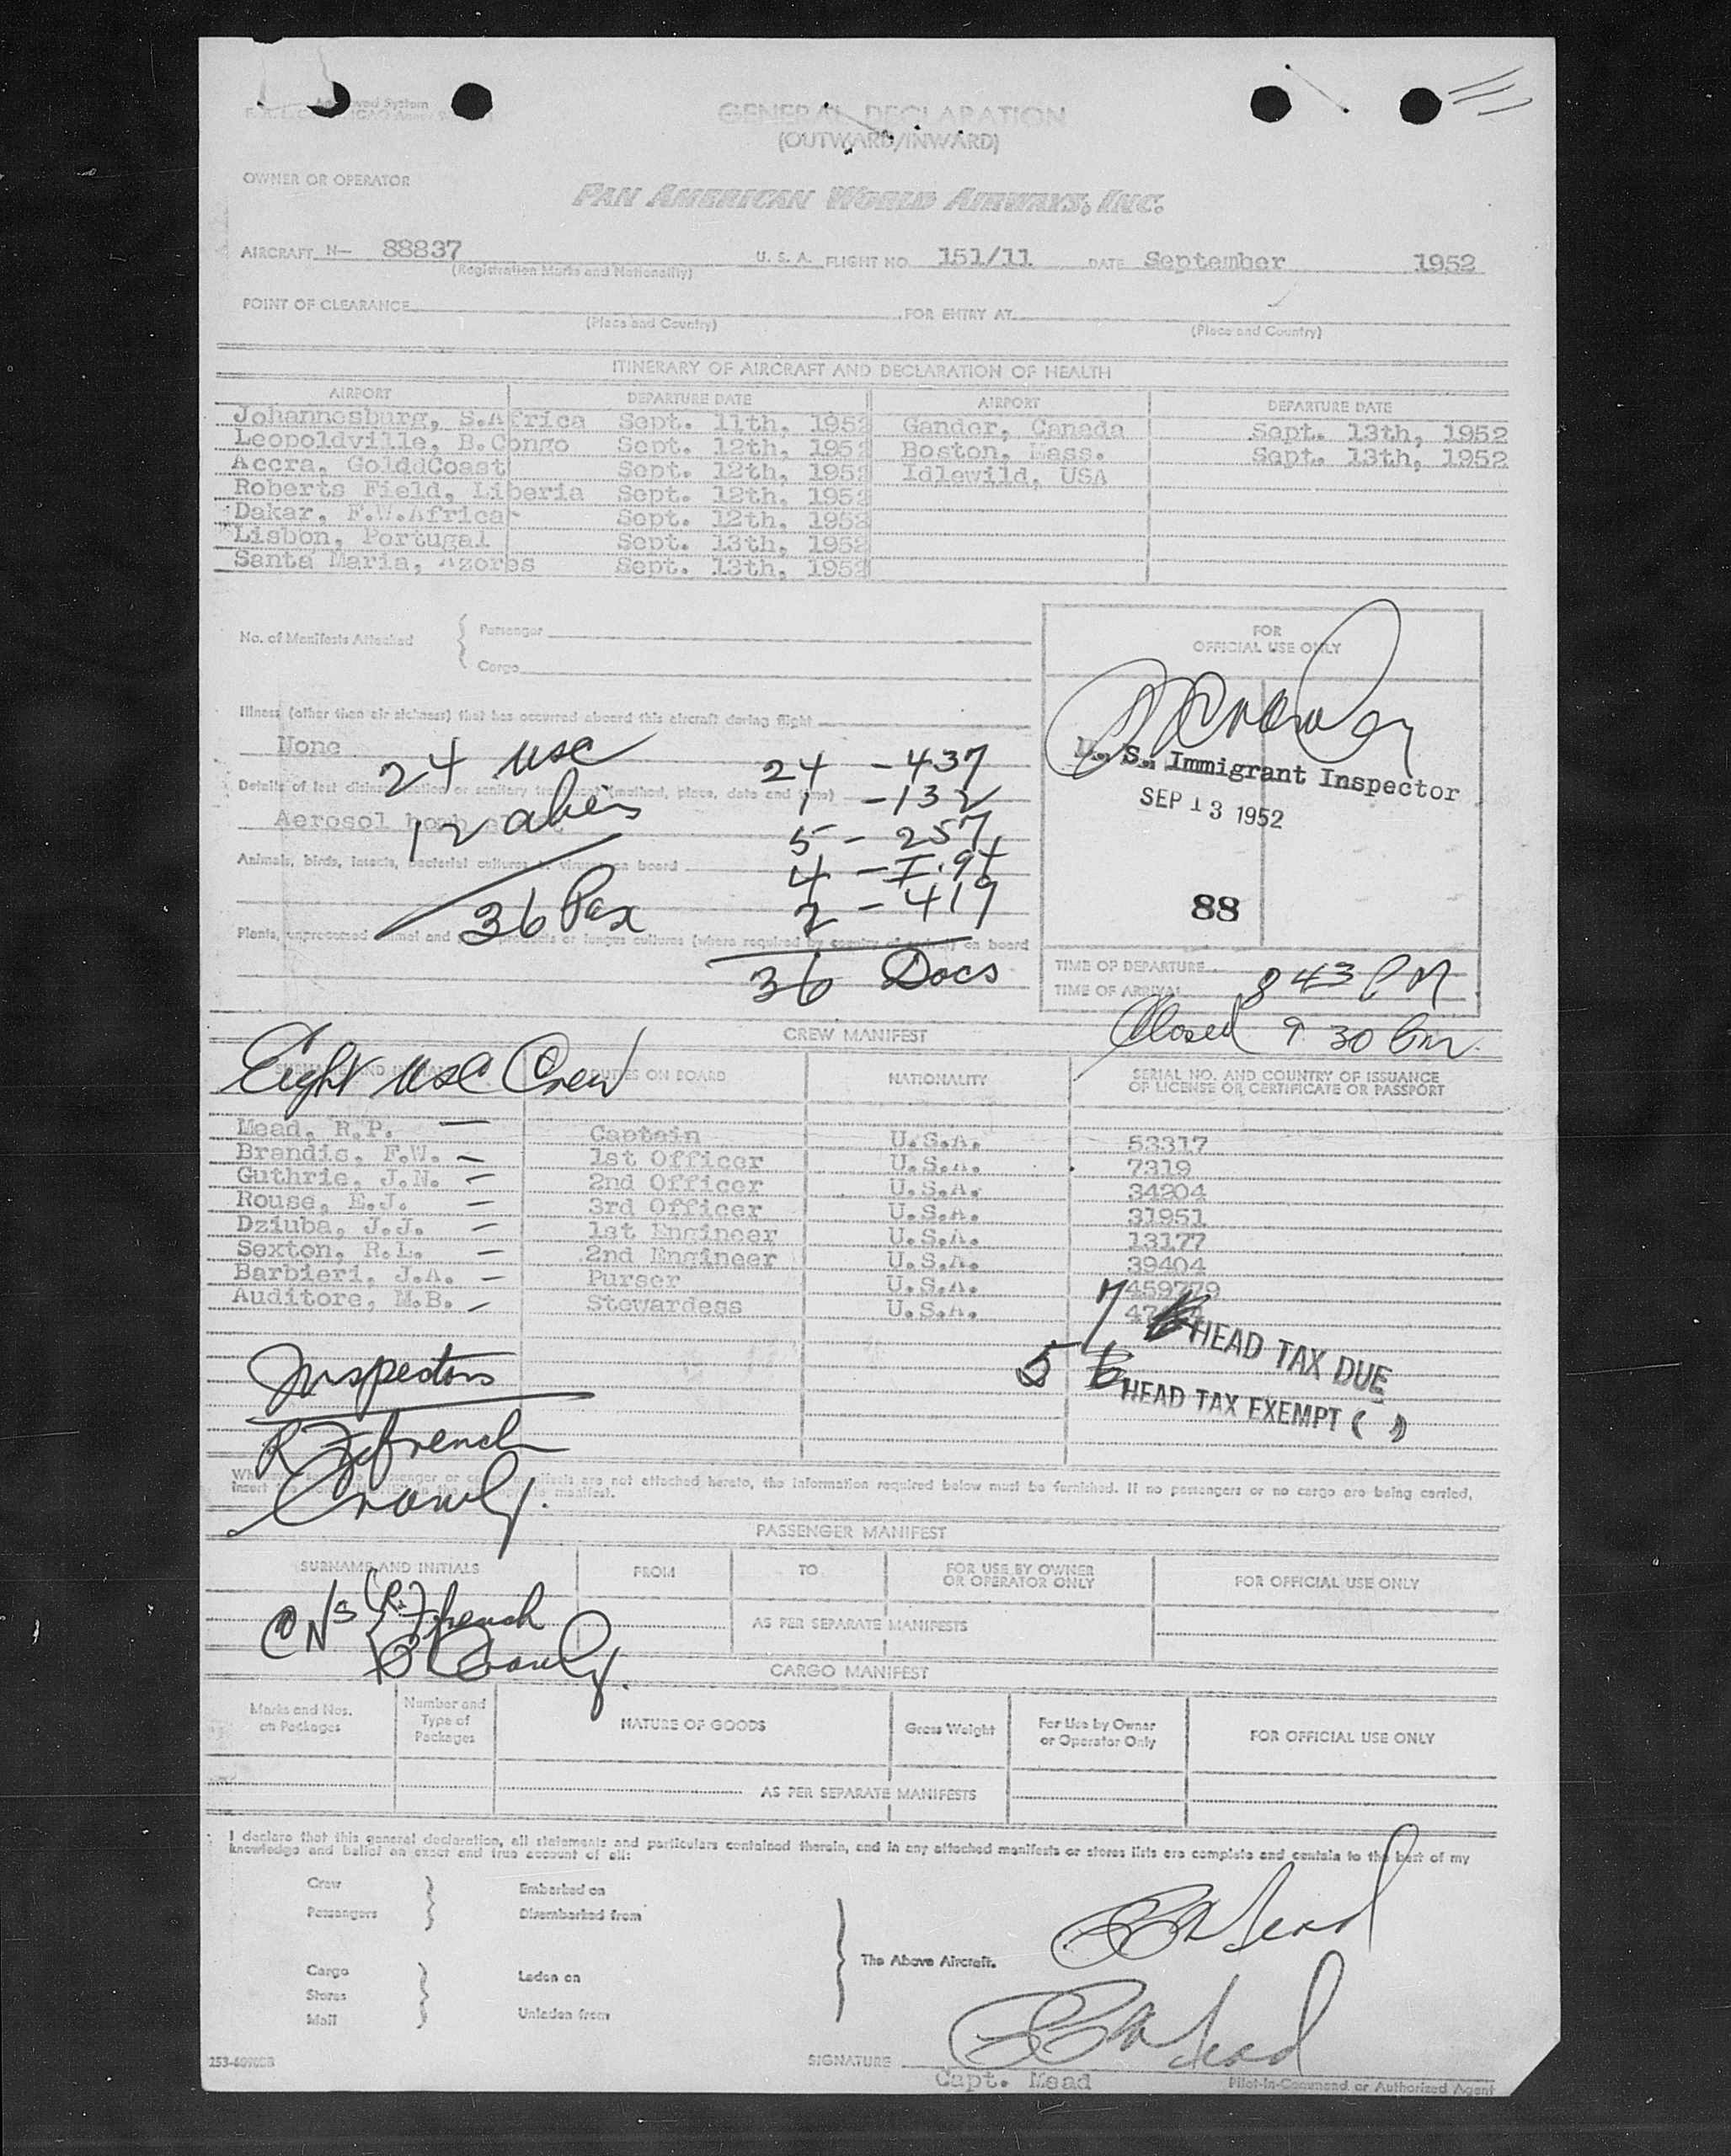 GENERAL DECLARATION
(OUTWARD/INWARD)
OWNER OR OPERATOR
PAN AMERICAN WORLD AIRWAYS, INC.
AIRCRAFT N— 88837 U. S. A. FLIGHT NO. 151/11 DATE September 1952
(Registration Marks and Nationality)
POINT OF CLEARANCE FOR ENTRY AT
(Place and Country) (Place and Country)
ITINERARY OF AIRCRAFT AND DECLARATION OF HEALTH
AIRPORT DEPARTURE DATE AIRPORT DEPARTURE DATE
Johannesburg, S.Africa Sept. 11th, 1952 Gander, Canada Sept. 13th, 1952
Leopoldville, B.Congo Sept. 12th, 1952 Boston, Mass. Sept. 13th, 1952
Accra, GolddCoast Sept. 12th, 1952 Idlewild, USA
Roberts Field, Liberia Sept. 12th, 1952
Dakar, F.W.Africa Sept. 12th, 1952
Lisbon, Portugal Sept. 13th, 1952
Santa Maria, Azores Sept. 13th, 1952
No. of Manifests Attached
Passenger
Cargo
FOR
OFFICIAL USE ONLY
U. S. Immigrant Inspector
SEP 13 1952
88
Illness (other than air sickness) that has occurred aboard this aircraft during flight
None
24 USC 24 - 437
Details of last disinsectization or sanitary treatment (method, place, date and time)
1 - 132
Aerosol bomb
12 aliens 5 - 257
Animals, birds, insects, bacterial cultures or viruses on board
4 - I.94
36 Pax 2 - 419
Plants, unprocessed animal and plant products or fungus cultures (where required by country of arrival) on board
36 Docs
TIME OF DEPARTURE
TIME OF ARRIVAL 8 43 PM
Closed 9 30 Pm
CREW MANIFEST
Eight USC Crew
SURNAME AND INITIALS DUTIES ON BOARD NATIONALITY SERIAL NO. AND COUNTRY OF ISSUANCE
OF LICENSE OR CERTIFICATE OR PASSPORT
Mead, R.P. Captain U.S.A. 53317
Brandis, F.W. 1st Officer U.S.A. 7319
Guthrie, J.N. 2nd Officer U.S.A. 34204
Rouse, E.J. 3rd Officer U.S.A. 31951
Dziuba, J.J. 1st Engineer U.S.A. 13177
Sexton, R.L. 2nd Engineer U.S.A. 39404
Barbieri, J.A. Purser U.S.A. 459779
Auditore, M.B. Stewardess U.S.A.
7 HEAD TAX DUE
5 HEAD TAX EXEMPT ( )
Inspectors
R French
Crowly.
passenger or cargo manifests are not attached hereto, the information required below must be furnished. If no passengers or no cargo are being carried,
insert manifest.
PASSENGER MANIFEST
SURNAME AND INITIALS FROM TO FOR USE BY OWNER
OR OPERATOR ONLY FOR OFFICIAL USE ONLY
AS PER SEPARATE MANIFESTS
French
Crowly.
CARGO MANIFEST
Marks and Nos.
on Packages
Number and
Type of
Packages
NATURE OF GOODS
Gross Weight
For Use by Owner
or Operator Only
FOR OFFICIAL USE ONLY
AS PER SEPARATE MANIFESTS
I declare that this general declaration, all statements and particulars contained therein, and in any attached manifests or stores lists are complete and contain to the best of my
knowledge and belief an exact and true account of all:
Crew Embarked on
Passengers Disembarked from
The Above Aircraft.
Cargo Laden on
Stores
Mail Unladen from
SIGNATURE
Capt. Mead
Pilot-in-Command or Authorized Agent